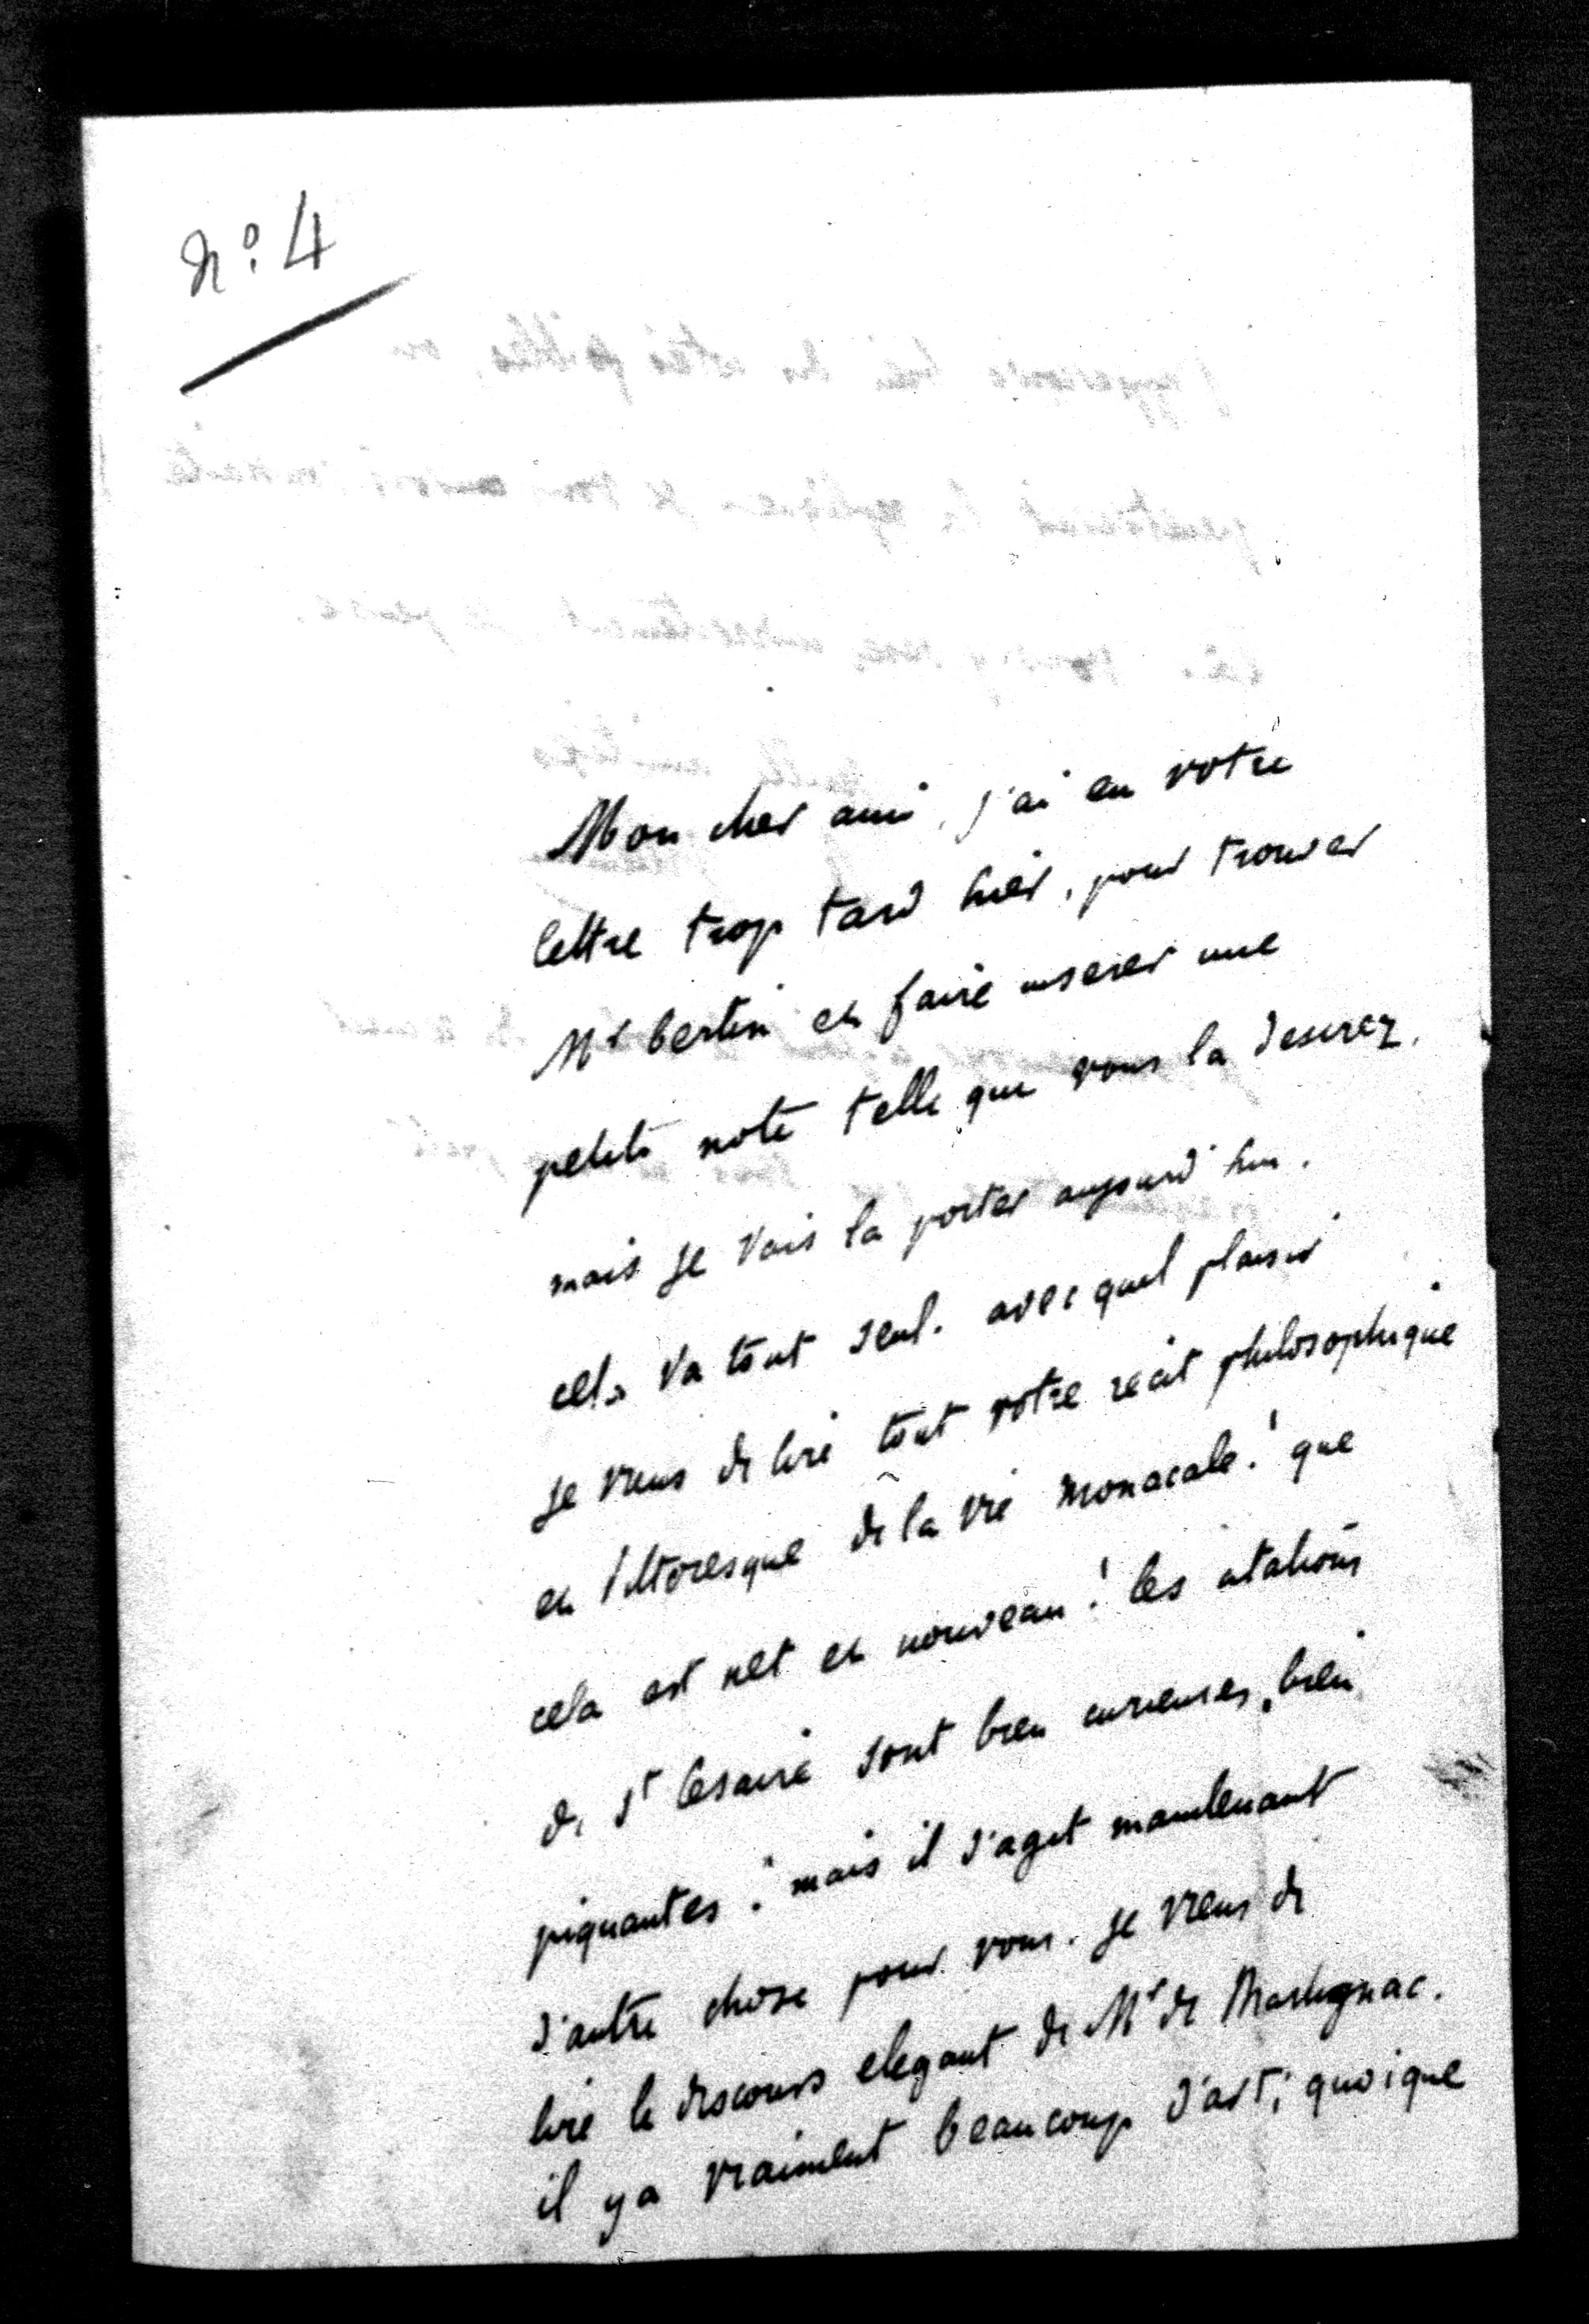 n° 4
Mon cher ami, j'ai eu votre
lettre trop tard hier, pour trouver
Mr bertin et faire inserer une
petite note telle que vous la desirez.
mais je vais la porter aujourd'hui.
cela va tout seul. avec quel plaisir
je viens de lire tout votre recit philosophique
et pittoresque de la vie monacale! que
cela est net et nouveau! les citations
de St Cesaire sont bien curieuses, bien
piquantes! mais il s'agit maintenant
d'autre chose pour vous. je viens de
lire le discours elegant de Mr de Martignac.
il y a vraiment beaucoup d'art; quoique